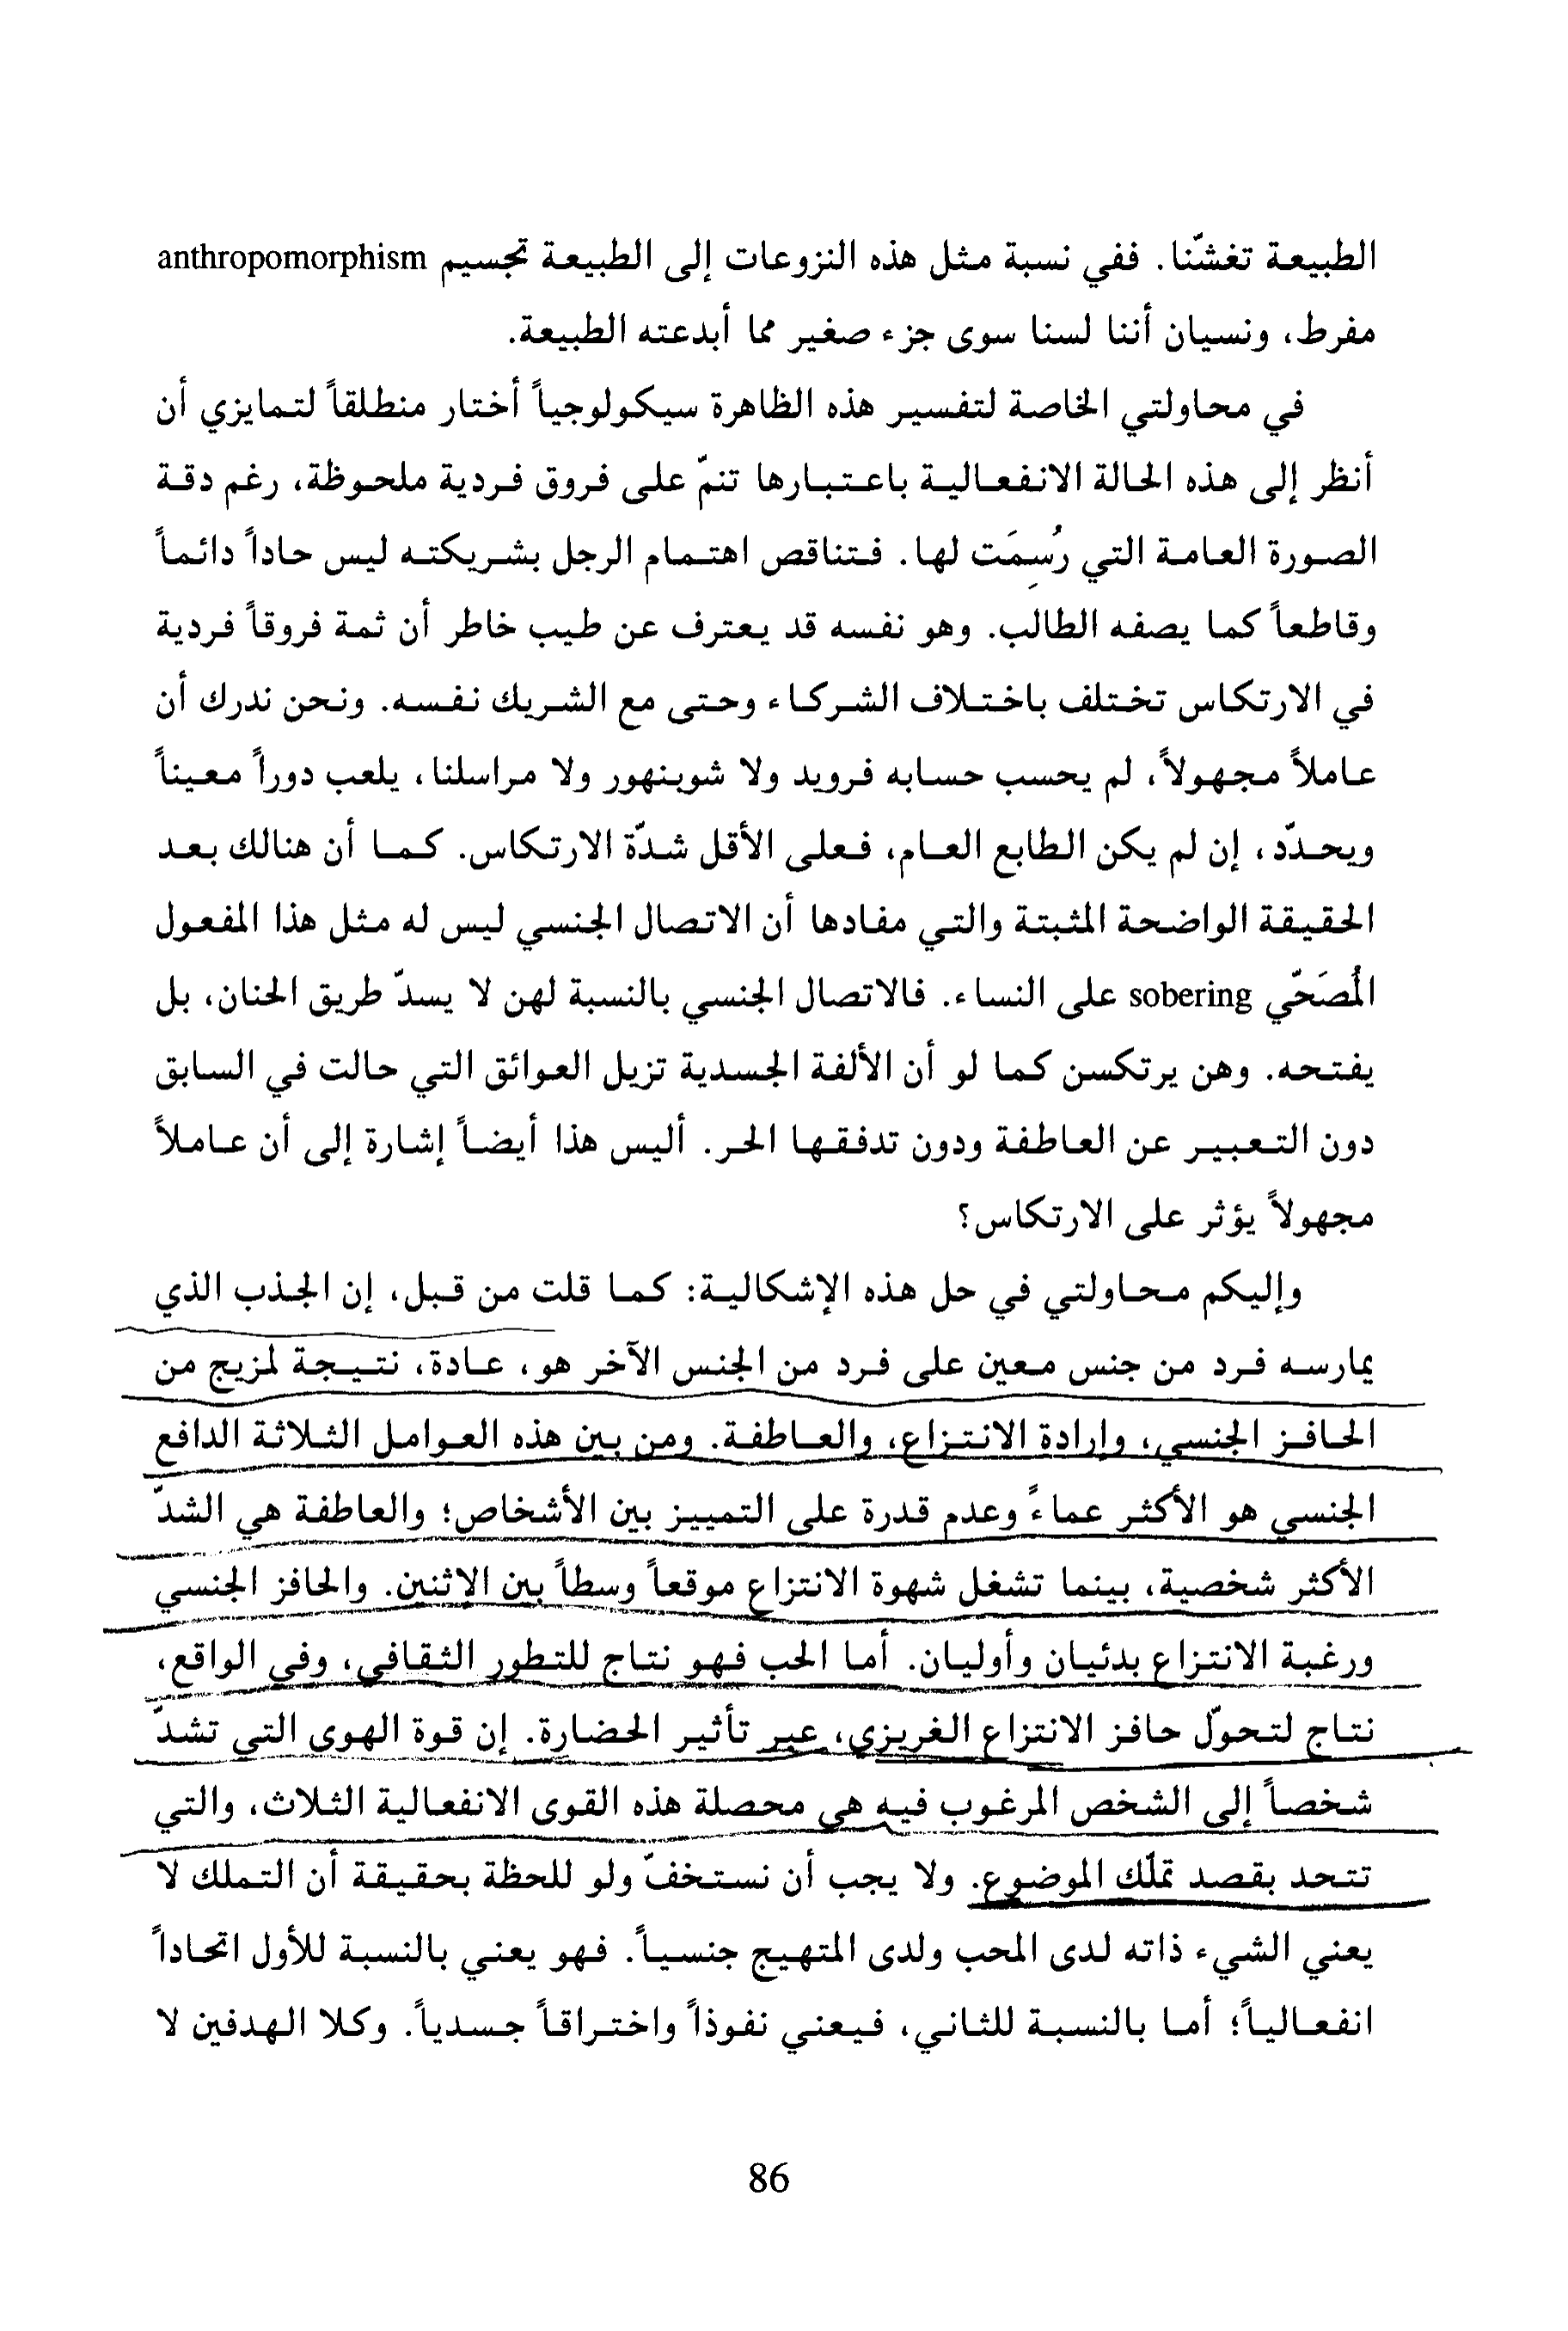 الطبيعة تغشّنا. ففي نسبة مثل هذه النزوعات إلى الطبيعة تجسيم anthropomorphism
مفرط، ونسيان أننا لسنا سوى جزء صغير مما أبدعته الطبيعة.
في محاولتي الخاصة لتفسير هذه الظاهرة سيكولوجياً أختار منطلقاً لتمايزي أن
أنظر إلى هذه الحالة الانفعالية باعتبارها تنمّ على فروق فردية ملحوظة، رغم دقة
الصورة العامة التي رُسِمَت لها. فتناقص اهتمام الرجل بشريكته ليس حاداً دائماً
وقاطعاً كما يصفه الطالب. وهو نفسه قد يعترف عن طيب خاطر أن ثمة فروقاً فردية
في الارتكاس تختلف باختلاف الشركاء وحتى مع الشريك نفسه. ونحن ندرك أن
عاملاً مجهولاً، لم يحسب حسابه فرويد ولا شوبنهور ولا مراسلنا، يلعب دوراً معيناً
ويحدّد، إن لم يكن الطابع العام، فعلى الأقل شدّة الارتكاس. كما أن هنالك بعد
الحقيقة الواضحة المثبتة والتي مفادها أن الاتصال الجنسي ليس له مثل هذا المفعول
المُصَحّي sobering على النساء. فالاتصال الجنسي بالنسبة لهن لا يسدّ طريق الحنان، بل
يفتحه. وهن يرتكسن كما لو أن الألفة الجسدية تزيل العوائق التي حالت في السابق
دون التعبير عن العاطفة ودون تدفقها الحر. أليس هذا أيضاً إشارة إلى أن عاملاً
مجهولاً يؤثر على الارتكاس؟
وإليكم محاولتي في حل هذه الإشكالية: كما قلت من قبل، إن الجذب الذي
يمارسه فرد من جنس معين على فرد من الجنس الآخر هو، عادة، نتيجة لمزيج من
الحافز الجنسي، وإرادة الانتزاع، والعاطفة. ومن بين هذه العوامل الثلاثة الدافع
الجنسي هو الأكثر عماءً وعدم قدرة على التمييز بين الأشخاص؛ والعاطفة هي الشدّ
الأكثر شخصية، بينما تشغل شهوة الانتزاع موقعاً وسطاً بين الإثنين. والحافز الجنسي
ورغبة الانتزاع بدئيان وأوليان. أما الحب فهو نتاج للتطور الثقافي، وفي الواقع،
نتاج لتحوّل حافز الانتزاع الغريزي، عبر تأثير الحضارة. إن قوة الهوى التي تشدّ
شخصاً إلى الشخص المرغوب فيه هي محصلة هذه القوى الانفعالية الثلاث، والتي
تتحد بقصد تملّك الموضوع. ولا يجب أن نستخفّ ولو للحظة بحقيقة أن التملك لا
يعني الشيء ذاته لدى المحب ولدى المتهيج جنسياً. فهو يعني بالنسبة للأول اتحاداً
انفعالياً؛ أما بالنسبة للثاني، فيعني نفوذاً واختراقاً جسدياً. وكلا الهدفين لا
86